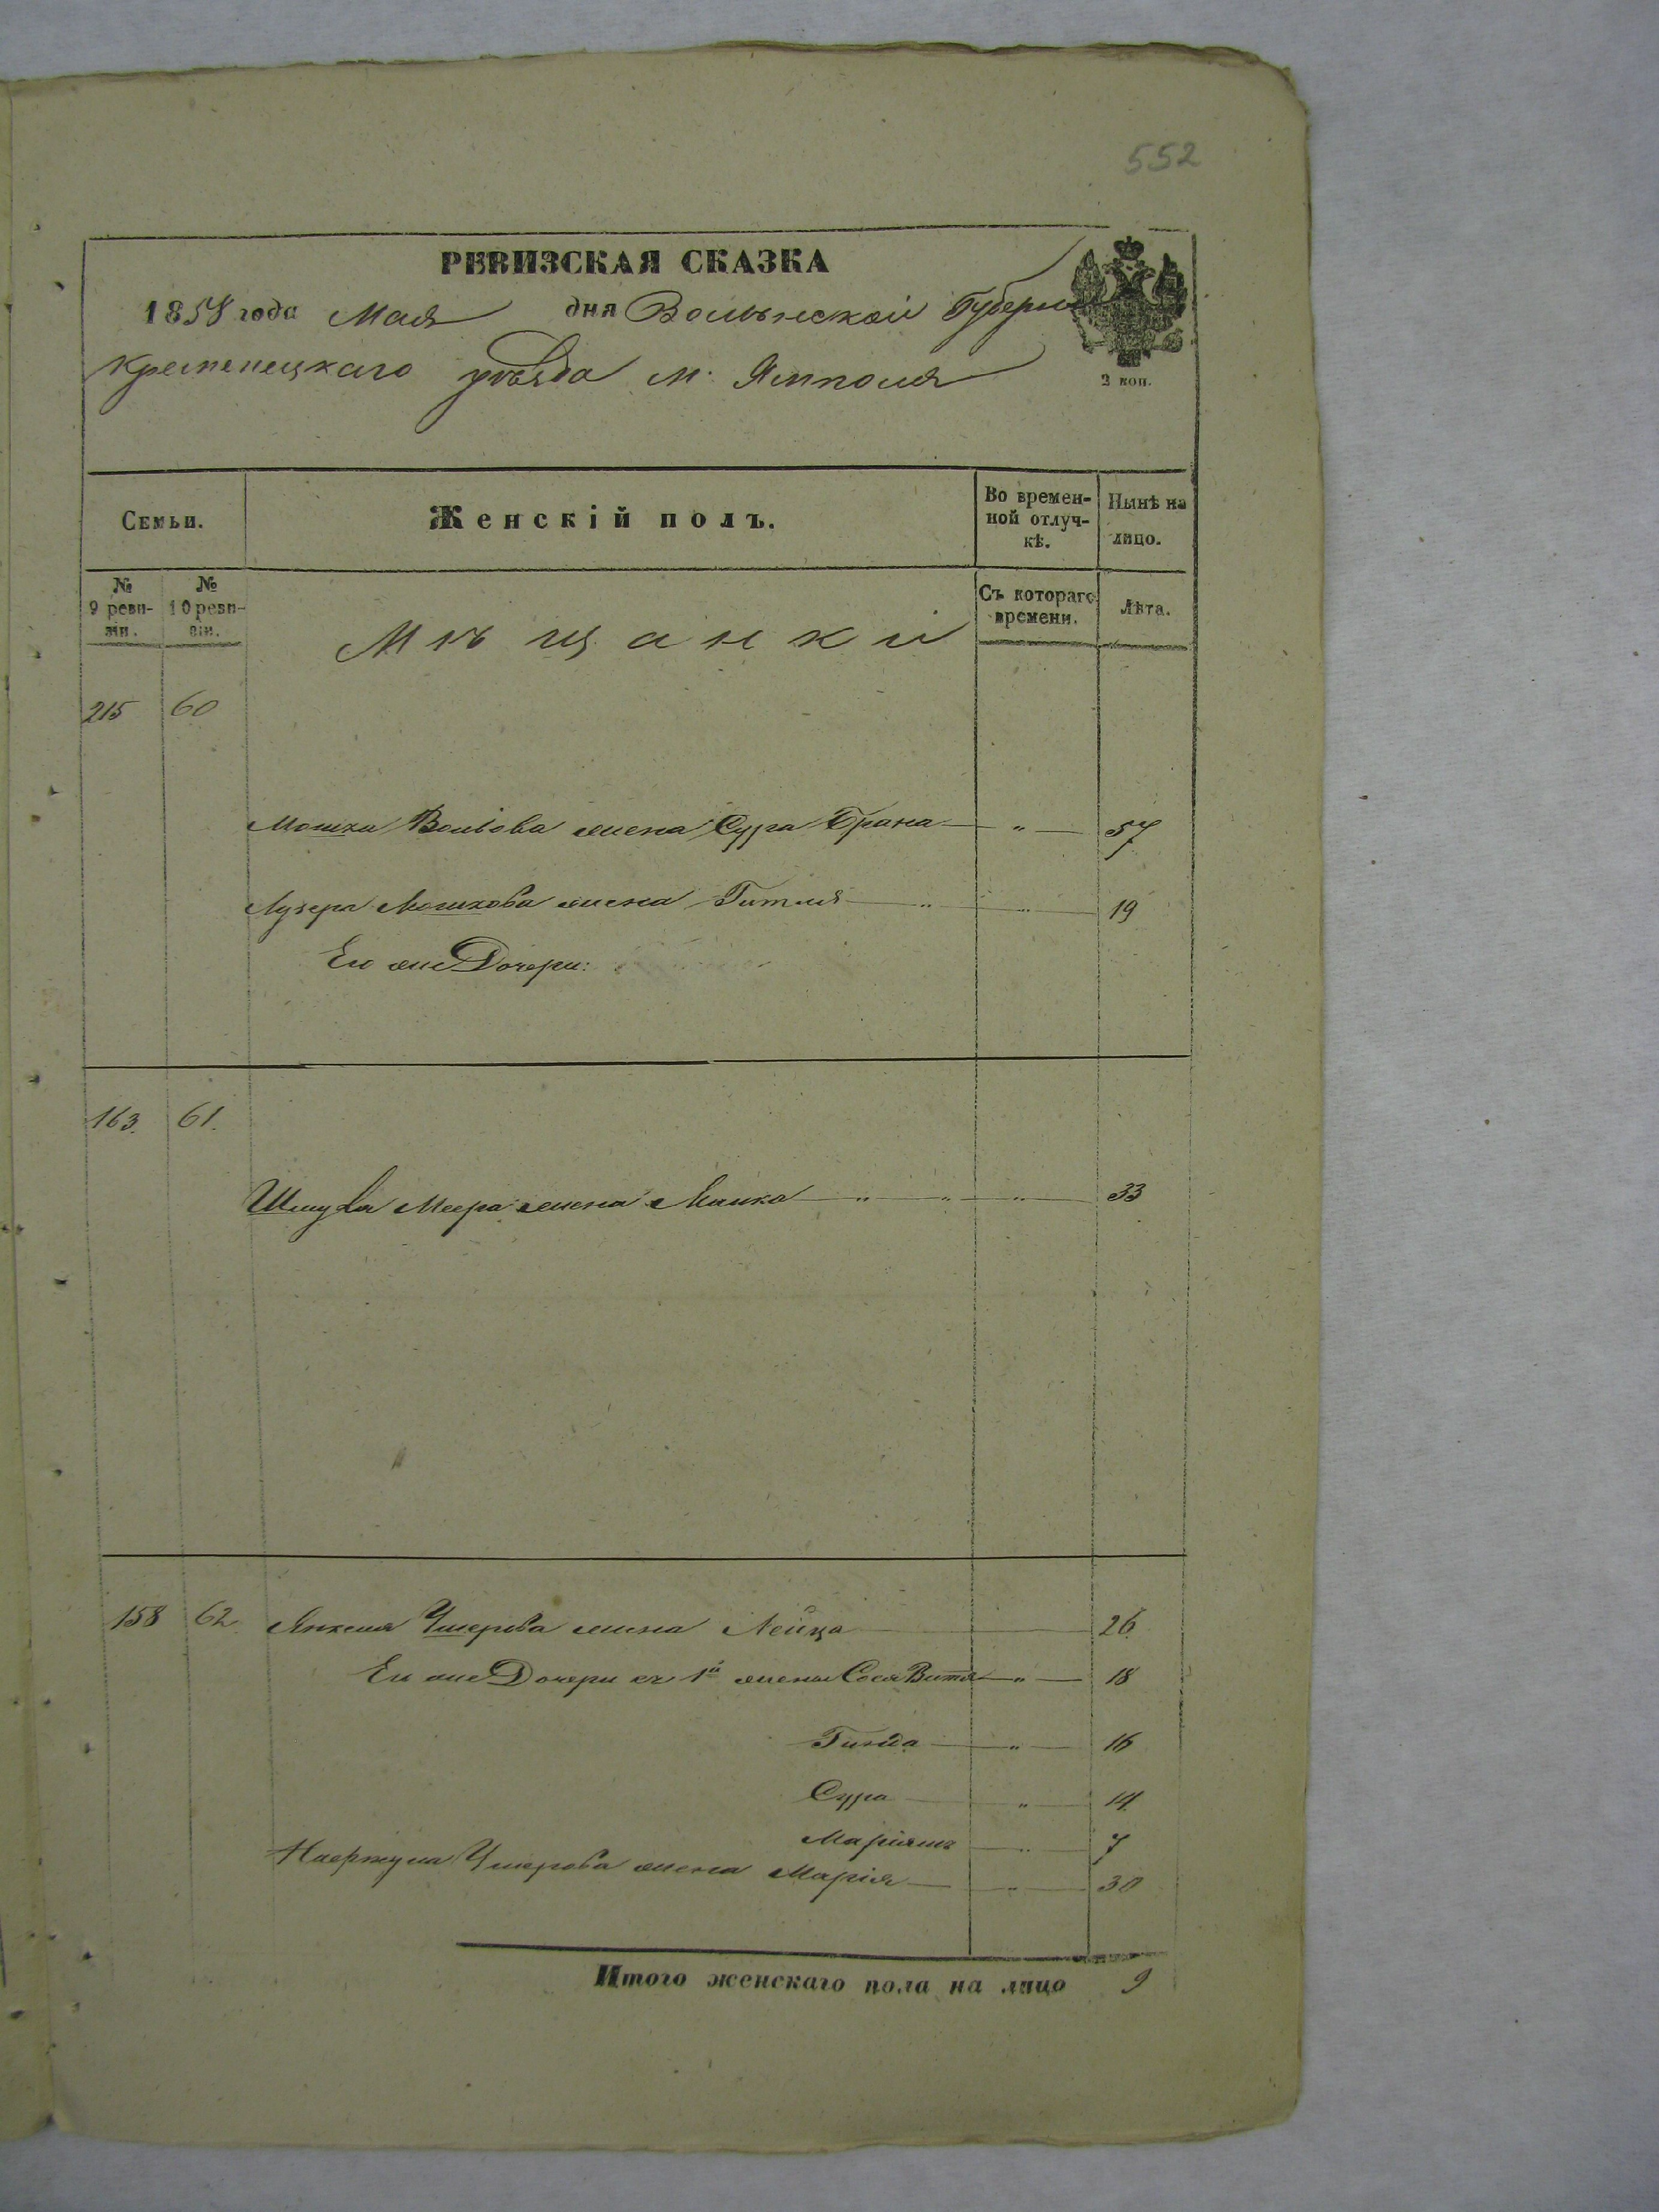 552
РЕВИЗСКАЯ СКАЗКА
1858 года Мая дня Волынской Губерніи
Кременецкаго уѣзда м. Ямполя
2 коп.
Семьи.
Женскій полъ.
Во времен-
ной отлуч-
кѣ.
Нынѣ на
лицо.
№
9 реви-
зіи.
№
10 реви-
зіи.
Мѣщанки
Съ котораго
времени.
Лѣта.
215 60
Мошка Волькова жена Сура Брана — " — 57
Лузера Мошкова жена Гитля — " — " — 19
Его же Дочери:
163. 61.
Шмуля Меера жена Малка — " — " — " — 33
158 62. Янкеля Умерова жена Лейца — 26
Его же Дочери съ 1й жены Сося Витя — " — 18
Гинда — " — 16
Сура — " — 14
Маріямъ — " — 7
Умерова жена Марія — " — 30
Итого женскаго пола на лицо 9